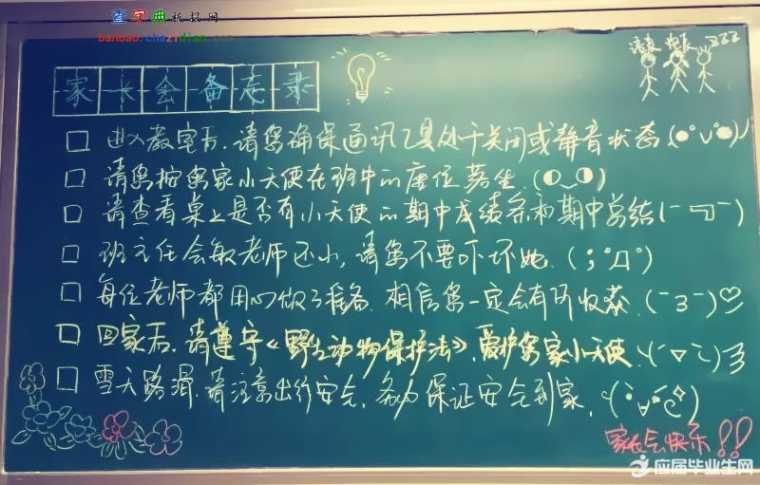 查字典教报网
banbao.chazidian.com
家长会备忘录
□ 进入教室后,请您确保通讯工具处于关闭或静音状态
□ 请您按您家小天使在班中的座位落坐
□ 请查看桌上是否有小天使的期中成绩条和期中总结
□ 班主任会敏老师还小,请您不要吓坏她.
□ 每位老师都用心做了准备,相信您一定会有所收获.
□ 回家后,请遵守《野生动物保护法》,爱护您家小天使.
□ 雪天路滑,请注意出行安全,务必保证安全到家.
家长会快乐!!
应届毕业生网